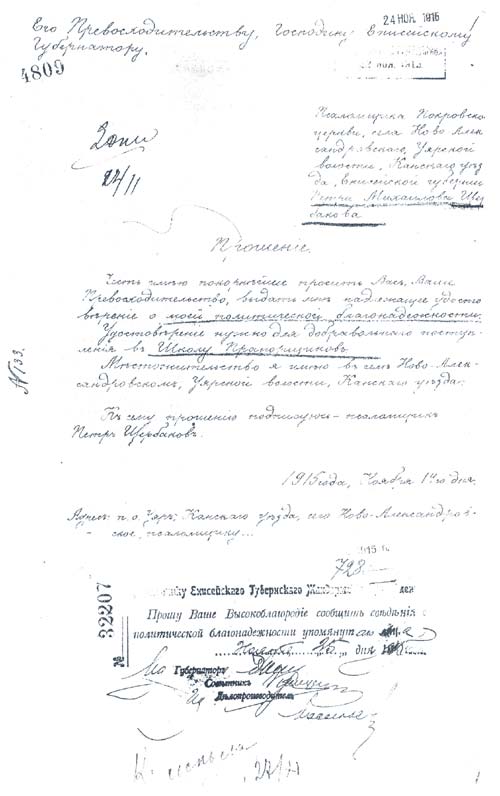 24 НОЯ. 1915
Его Превосходительству, Господину Енисейскому
Губернатору.
4809
Псаломщика Покровско
церкви, села Ново-Алек-
сандровскаго, Уярской
волости, Канскаго уѣз-
да, Енисейской губернiи
Петра Михайлова Щер-
бакова
24/11
Прошенiе.
Честь имѣю покорнѣйше просить Васъ, Ваше
Превосходительство, выдать мнѣ надлежащее удосто
вѣренiе о моей политической благонадежности.
Удостовѣренiе нужно для добровольнаго поступ-
ленiя въ Школу Прапорщиковъ.
№ 133.
Мѣстожительство я имѣю въ селѣ Ново-Алек-
сандровскомъ, Уярской волости, Канскаго уѣзда.
Къ сему прошенiю подписуюсь псаломщикъ
Петръ Щербаковъ.
1915 года, Ноября 14го дня.
Адресъ: п. о. Уяръ, Канскаго уѣзда, село Ново-Александров-
ское, псаломщику...
723
Енисейскаго Губернскаго Жандарм
№ 32207
Прошу Ваше Высокоблагородiе сообщить свѣдѣнiя
политической благонадежности упомянутаго лица
Ноября 25 дня 1915
Губернатору
Совѣтникъ
Дѣлопроизводитель
24/XI